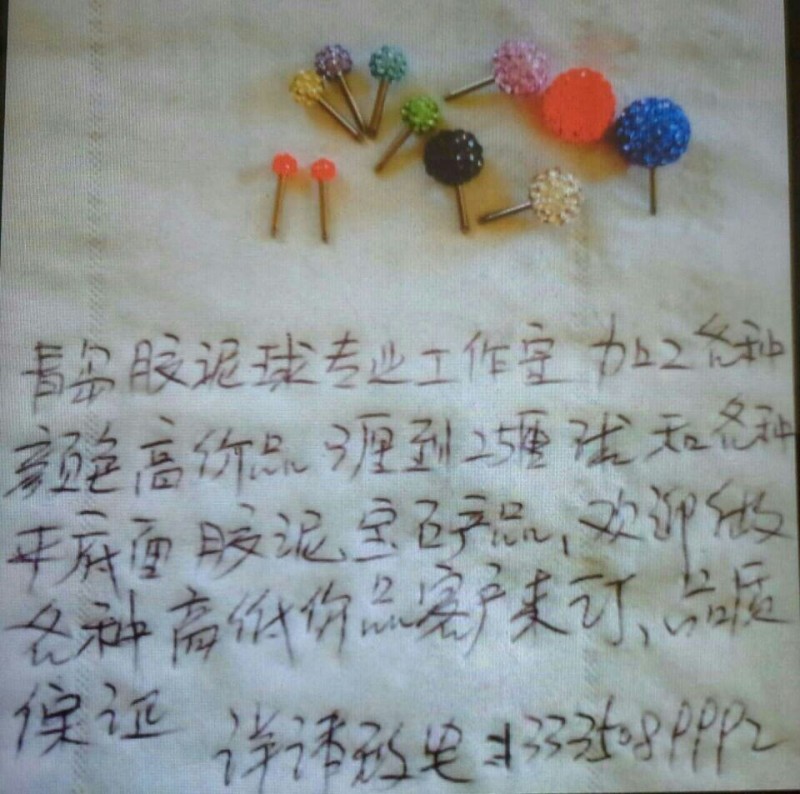 青岛胶泥球专业工作室 加工各种
颜色高价品 3厘到25厘球和各种
平底面胶泥、宝石产品,欢迎做
各种高低价品客户来订、品质
保证 详请致电:13335089992